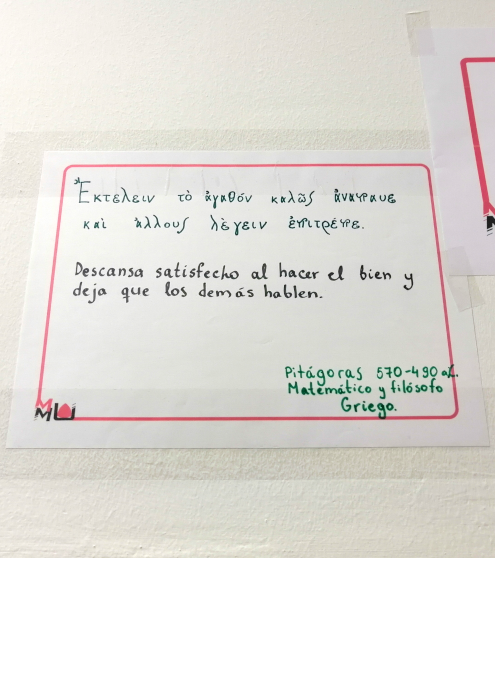 Ἐκτελειν τὸ ἀγαθόν καλῶς ἀναπαυε
και ἄλλους λέγειν ἐπιτρέπε.
Descansa satisfecho al hacer el bien y
deja que los demás hablen.
Pitágoras 570-490 a.
Matemático y filósofo
Griego.